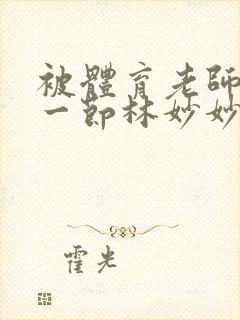 被體育老師
一節林妙妙
霍光